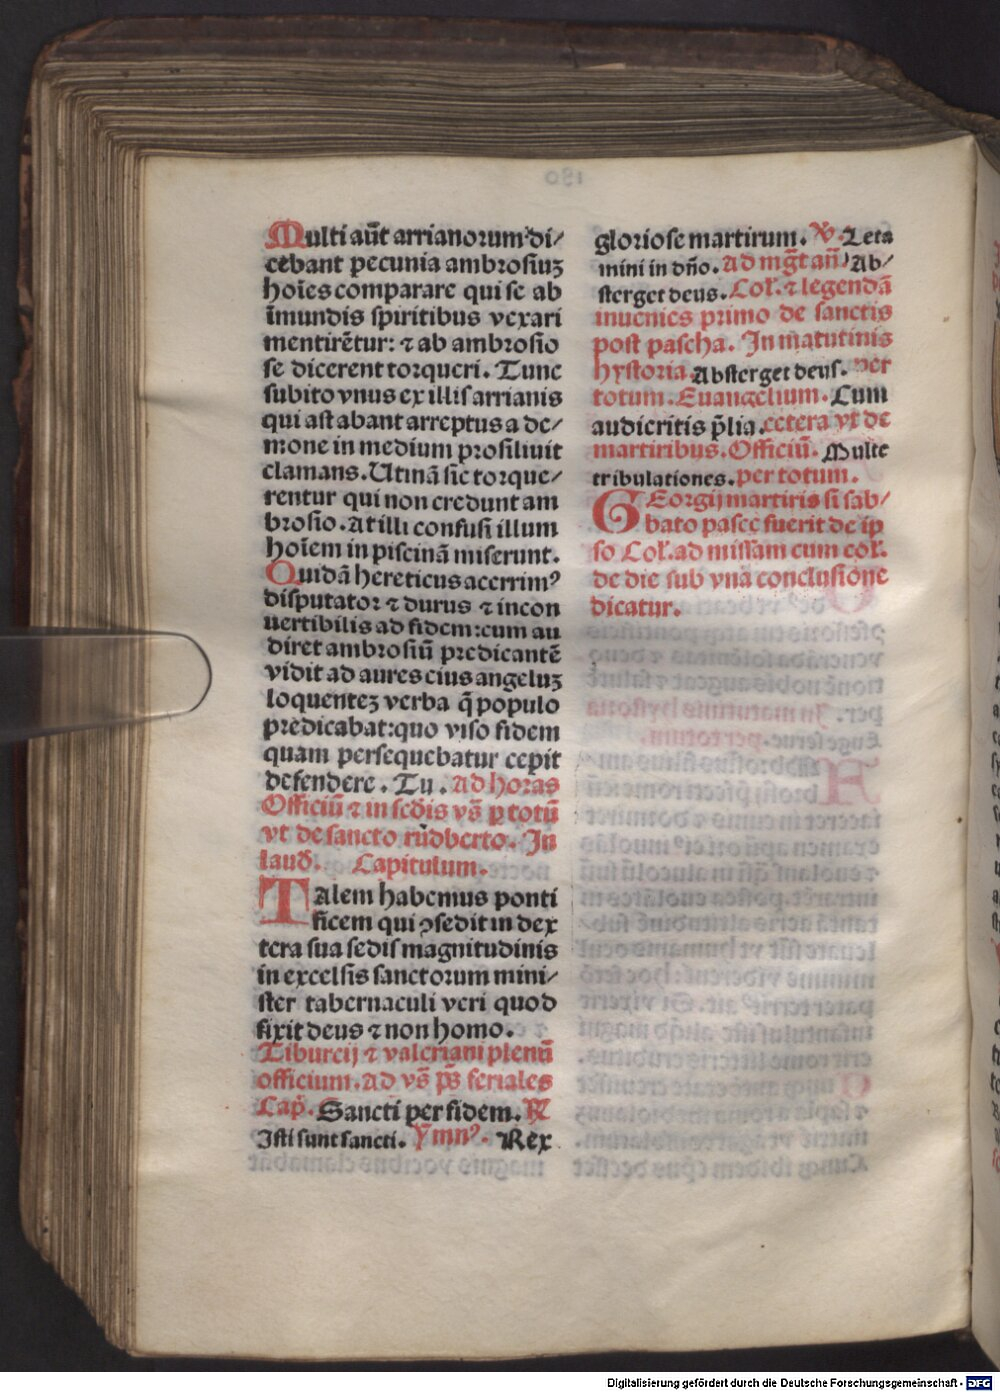 Multi aūt arrianorum di/
cebant pecunia ambrosiuʒ
hoīes comparare qui se ab
īmundis spiritibus vexari
mentirētur: ⁊ ab ambrosio
se dicerent torqueri. Tunc
subito vnus ex illis arrianis
qui astabant arreptus a de/
mone in medium prosiliuit
clamans. Utinā sic torque/
rentur qui non credunt am
brosio. At illi confusi illum
hoīem in piscinā miserunt.
Quidā hereticus acerrimꝰ
disputator ⁊ durus ⁊ incon
uertibilis ad fidem: cum au
diret ambrosiū predicantē
vidit ad aures eius angeluʒ
loquenteʒ verba q̄ populo
predicabat: quo viso fidem
quam persequebatur cepit
defendere. Tu. Ad horas
Officiū ⁊ in secd̄is vs̄ p totū
vt de sancto rūdberto. In
laud̄. Capitulum.
Talem habemus ponti
ficem qui ꝯsedit in dex
tera sua sedis magnitudinis
in excelsis sanctorum mini/
ster tabernaculi veri quod
fixit deus ⁊ non homo.
Tiburcij ⁊ valeriani plenū
officium. Ad vs̄ ps̄ feriales
Cap̄. Sancti per fidem. ℟
Isti sunt sancti. Ymnꝰ. Rex
gloriose martirum. ℣. Leta
mini in dn̄o. Ad mg̅t an̄ Ab/
sterget deus. Col̄. ⁊ legendā
inuenies primo de sanctis
post pascha. In matutinis
hystoria Absterget deus. per
totum. Euangelium. Cum
audieritis p̄lia. cetera vt de
martiribus. Officiū. Multe
tribulationes. per totum.
GEorgij martiris si sab/
bato pasce fuerit de ip
so Col̄. ad missam cum col̄.
de die sub vna conclusione
dicatur.
Digitalisierung gefördert durch die Deutsche Forschungsgemeinschaft - DFG